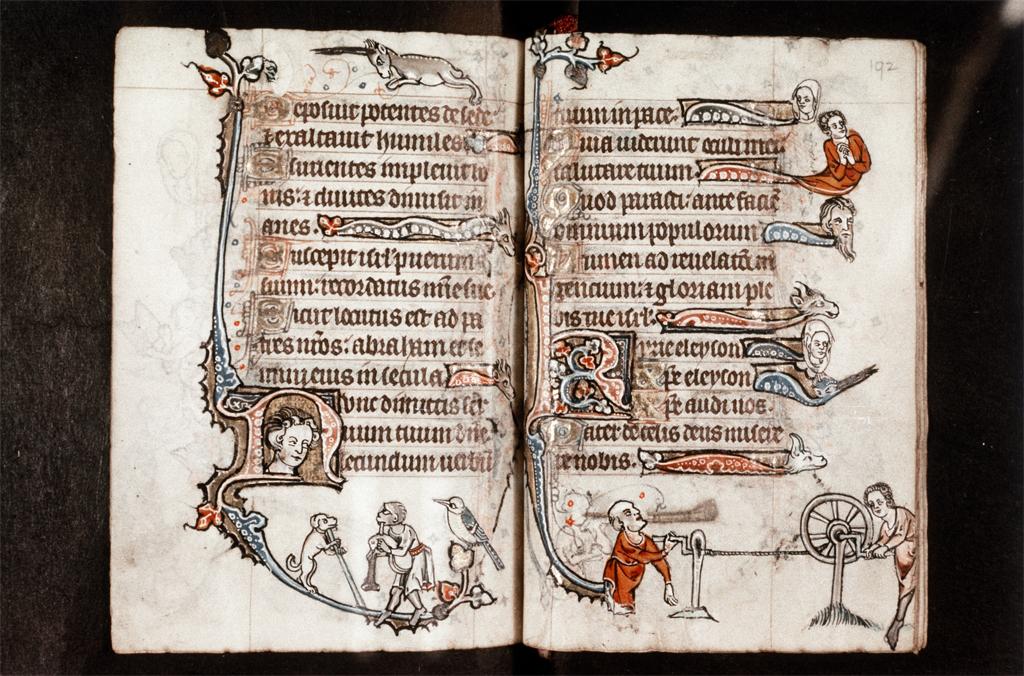 Deposuit potentes de sede
⁊ exaltauit humiles
Esurientes impleuit bo
nis: ⁊ diuites dimisit in
anes.
Suscepit isrl' puerum
suum: recordatus mīe sue
Sicut locutus est ad pa
tres nr̄os: abraham et se
mini eius in secula
Nunc dimittis ser
uum tuum dn̄e
secundum uerbū
192
tuum in pace.
Quia uiderunt oculi mei
salutare tuum.
Quod parasti: ante faciē
omnium populorum
Lumen ad reuelatōm
gentium: ⁊ gloriam ple
bis tue isrl'.
Kyrie eleyson
Xpe eleyson
Xpe audi nos.
Pater de celis deus misere
re nobis.